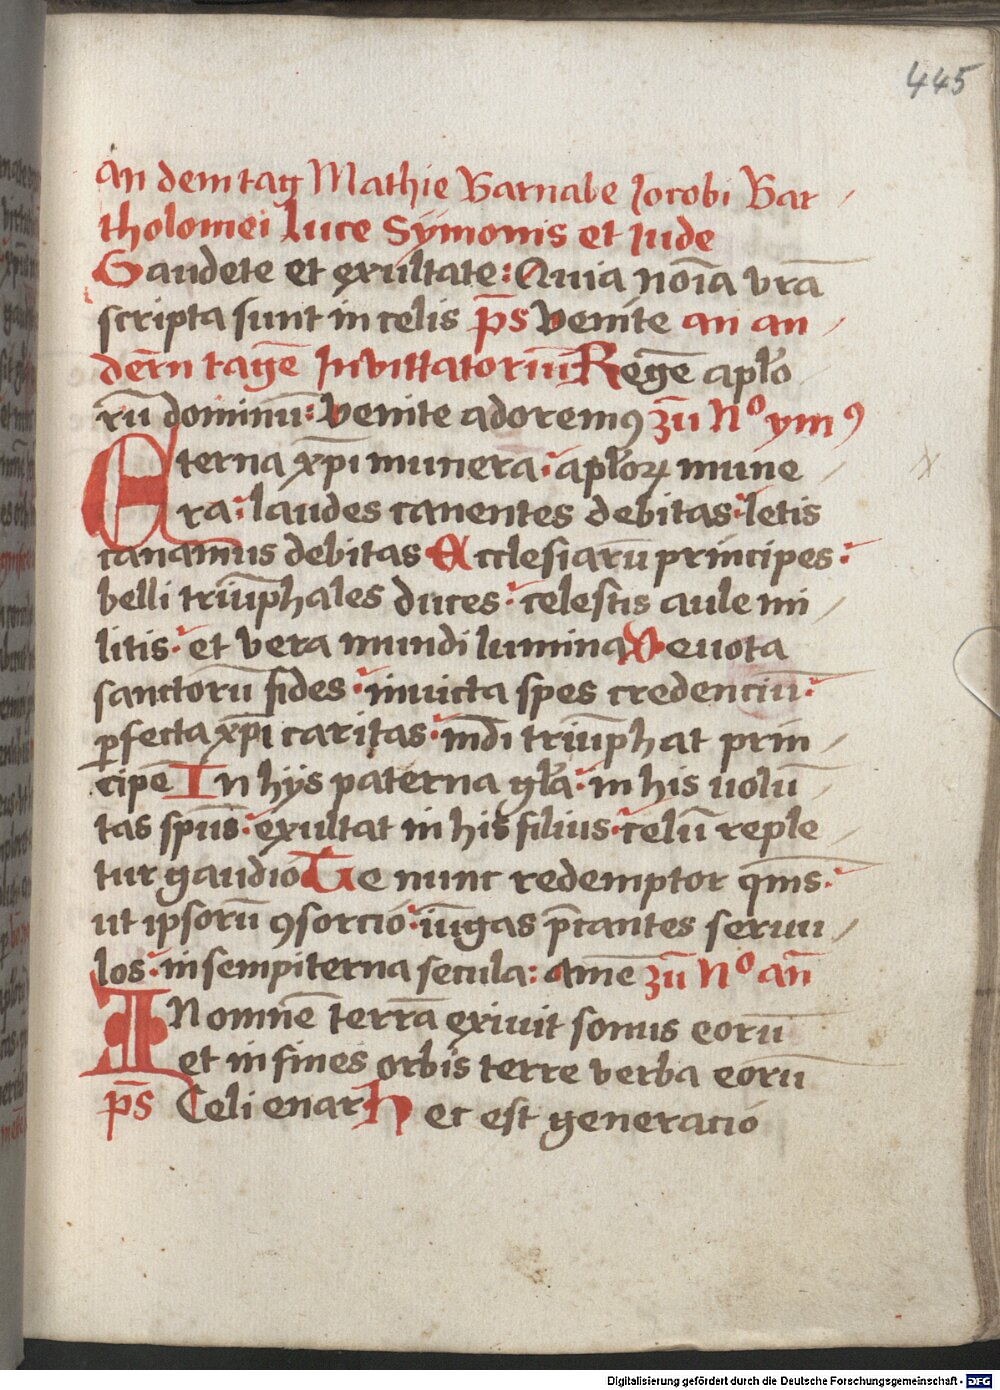 445
an dem tag Mathie Barnabe Jocobi Bar
tholomei Luce Symonis et Jude
Gaudete et exultate: Quia nōīa vrā
scripta sunt in celis p̄s Venite an an
dern̄ tagē Invittatoriū Regē apl̄o
rū dominū: Venite adoremꝰ zū Nᵒ ymꝰ
Eterna xp̄i munera: apl̄oꝝ mune
ra: laudes canentes debitas: letis
canamus debitas Ecclesiarū principes:
belli triūphales duces: celestis aule mi
litis: et vera mundi lumina Deuota
sanctorū fides: inuicta spes credenciū:
ꝑfecta xp̄i caritas: mūdi triūphat prin
cipē In hijs paterna gl̄a: in his uolū
tas sp̄us: exultat in his filius: celū reple
tur gaudio Te nunc redemptor q̄ms:
ut ipsorū ꝯsorcio: iūgas p̄cantes seruu
los: in sempiterna secula: amē zū Nᵒ an̄
IN omnē terrā exiuit sonus eorū
et in fines orbis terre verba eorū
p̄s Celi enar Hec est generacio
Digitalisierung gefördert durch die Deutsche Forschungsgemeinschaft - DFG